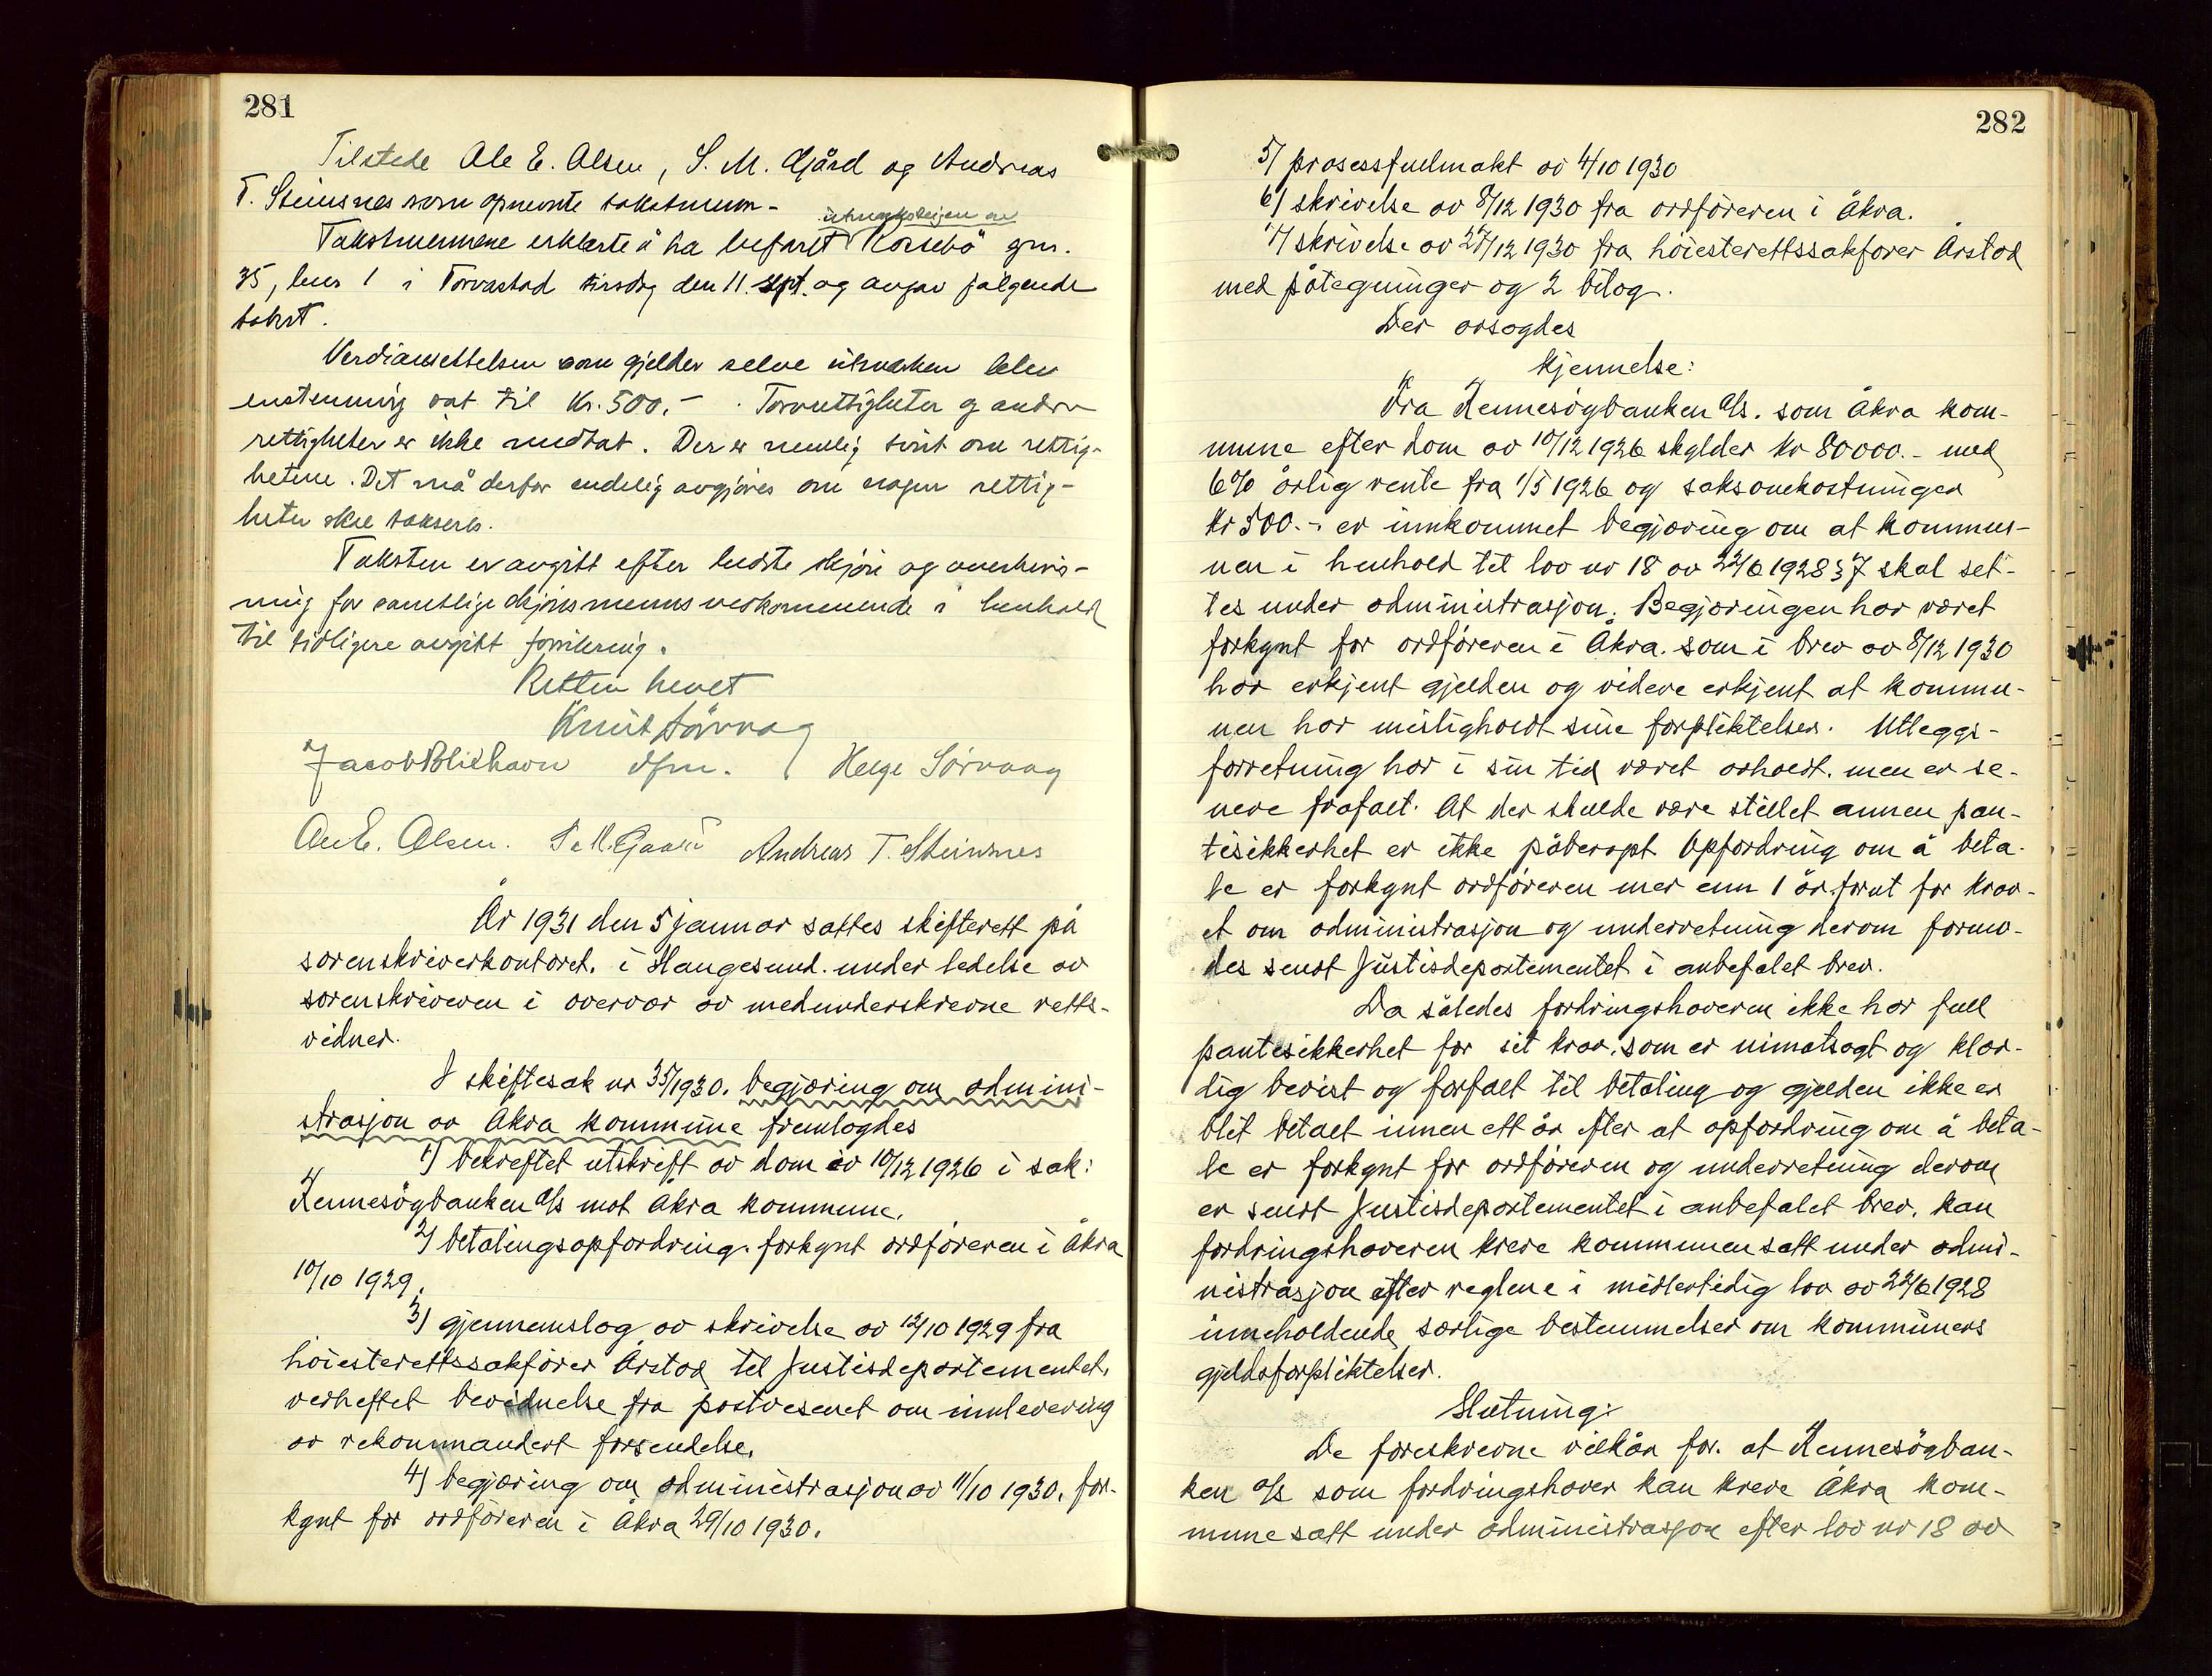 281
Tilstede Ole E. Olsen, S. M. Gård og Andreas
T. Steinsnes som opnevnte takstmenn -
utmarksteigen av
Takstmennene erklærte å ha befaret "Korsebö" gnr.
35, bnr 1 i Torvastad tirsdag den 11. sept. og avgav følgende
takst.
Verdiansettelsen som gjelder selve utmarken blev
enstemmig sat til Kr. 500,- . Torvrettigheter og andre
rettigheter er ikke medtat. Der er nemlig tvist om rettig-
hetene. Det må derfor endelig avgjøres om nogen rettig-
heter skal takseres.
Taksten er avgitt efter bedste skjøn og overbevis-
ning for samtlige skjønsmenns vedkommende i henhold
til tidligere avgitt forsikring.
Retten hevet
Knut Sörvaag
Jacob Blikhavn dfm. Helge Sørvaag
Ole E. Olsen. S. M. Gaard Andreas T. Steinsnes
År 1931 den 5 januar sattes skifterett på
sorenskriverkontoret i Haugesund under ledelse av
sorenskriveren i overvær av medunderskrevne retts-
vidner.
I skiftesak nr 35/1930. begjæring om admini-
strasjon av Åkra kommune fremlagdes
1) bekreftet utskrift av dom av 10/12 1926 i sak:
Rennesøybanken A/s mot Åkra kommune.
2) betalingsopfordring forkynt ordføreren i Åkra
10/10 1929.
3) gjennemslag av skrivelse av 12/10 1929 fra
høiesterettssakfører Årstad til Justisdepartementet,
vedheftet bevidnelse fra postvesenet om innlevering
av rekommandert forsendelse.
4) begjæring om administrasjon av 11/10 1930, for-
kynt for ordføreren i Åkra 29/10 1930.
282
5) prosessfullmakt av 4/10 1930
6) skrivelse av 8/12 1930 fra ordføreren i Åkra.
7) skrivelse av 27/12 1930 fra høiesterettssakfører Årstad
med påtegninger og 2 bilag.
Der avsagdes
kjennelse:
Fra Rennesøybanken A/s. som Åkra kom-
mune efter dom av 10/12 1926 skylder kr 80000.- med
6% årlig rente fra 1/5 1926 og saksomkostninger
kr 500.- er innkommet begjæring om at kommu-
nen i henhold til lov nr 18 av 22/6 1928 § 7 skal set-
tes under administrasjon. Begjæringen har været
forkynt for ordføreren i Åkra. som i brev av 8/12 1930
har erkjent gjelden og videre erkjent at kommu-
nen har misligholdt sine forpliktelser. Utleggs-
forretning har i sin tid været avholdt. men er se-
nere frafalt. At der skulde være stillet annen pan-
tesikkerhet er ikke påberopt Opfordring om å beta-
le er forkynt ordføreren mer enn 1 år forut for krav-
et om administrasjon og underretning derom formo-
des sendt Justisdepartementet i anbefalet brev.
Da således fordringshaveren ikke har full
pantesikkerhet for sit krav, som er uimotsagt og klar-
lig bevist og forfalt til betaling og gjelden ikke er
blit betalt innen ett år efter at opfordring om å beta-
le er forkynt for ordføreren og underretning derom
er sendt Justisdepartementet i anbefalet brev, kan
fordringshaveren kreve kommunen satt under admi-
nistrasjon efter reglene i midlertidig lov av 22/6 1928
inneholdende særlige bestemmelser om kommuners
gjeldsforpliktelser.
Slutning:
De foreskrevne vilkår for. at Rennesøyban-
ken A/s som fordringshaver kan kreve Åkra kom-
mune satt under administrasjon efter lov nr 18 av